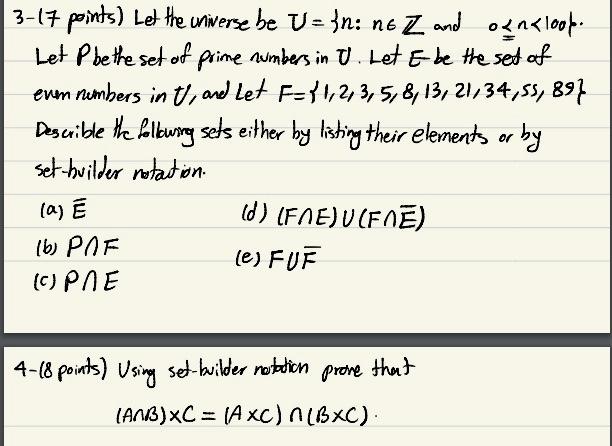 3-(7 points) Let the universe be U = {n: n∈ Z and 0≤n<100}.
Let P be the set of prime numbers in U. Let E be the set of
even numbers in U, and Let F={1,2,3,5,8,13,21,34,55,89}
Describle the follbwing sets either by listing their elements or by
set-builder notation.
(a) E̅
(b) P∩F
(c) P∩E
(d) (F∩E)∪(F∩E̅)
(e) F∪F̅
4-(8 points) Using set-builder notation prove that
(A∩B)×C = (A×C)∩(B×C).